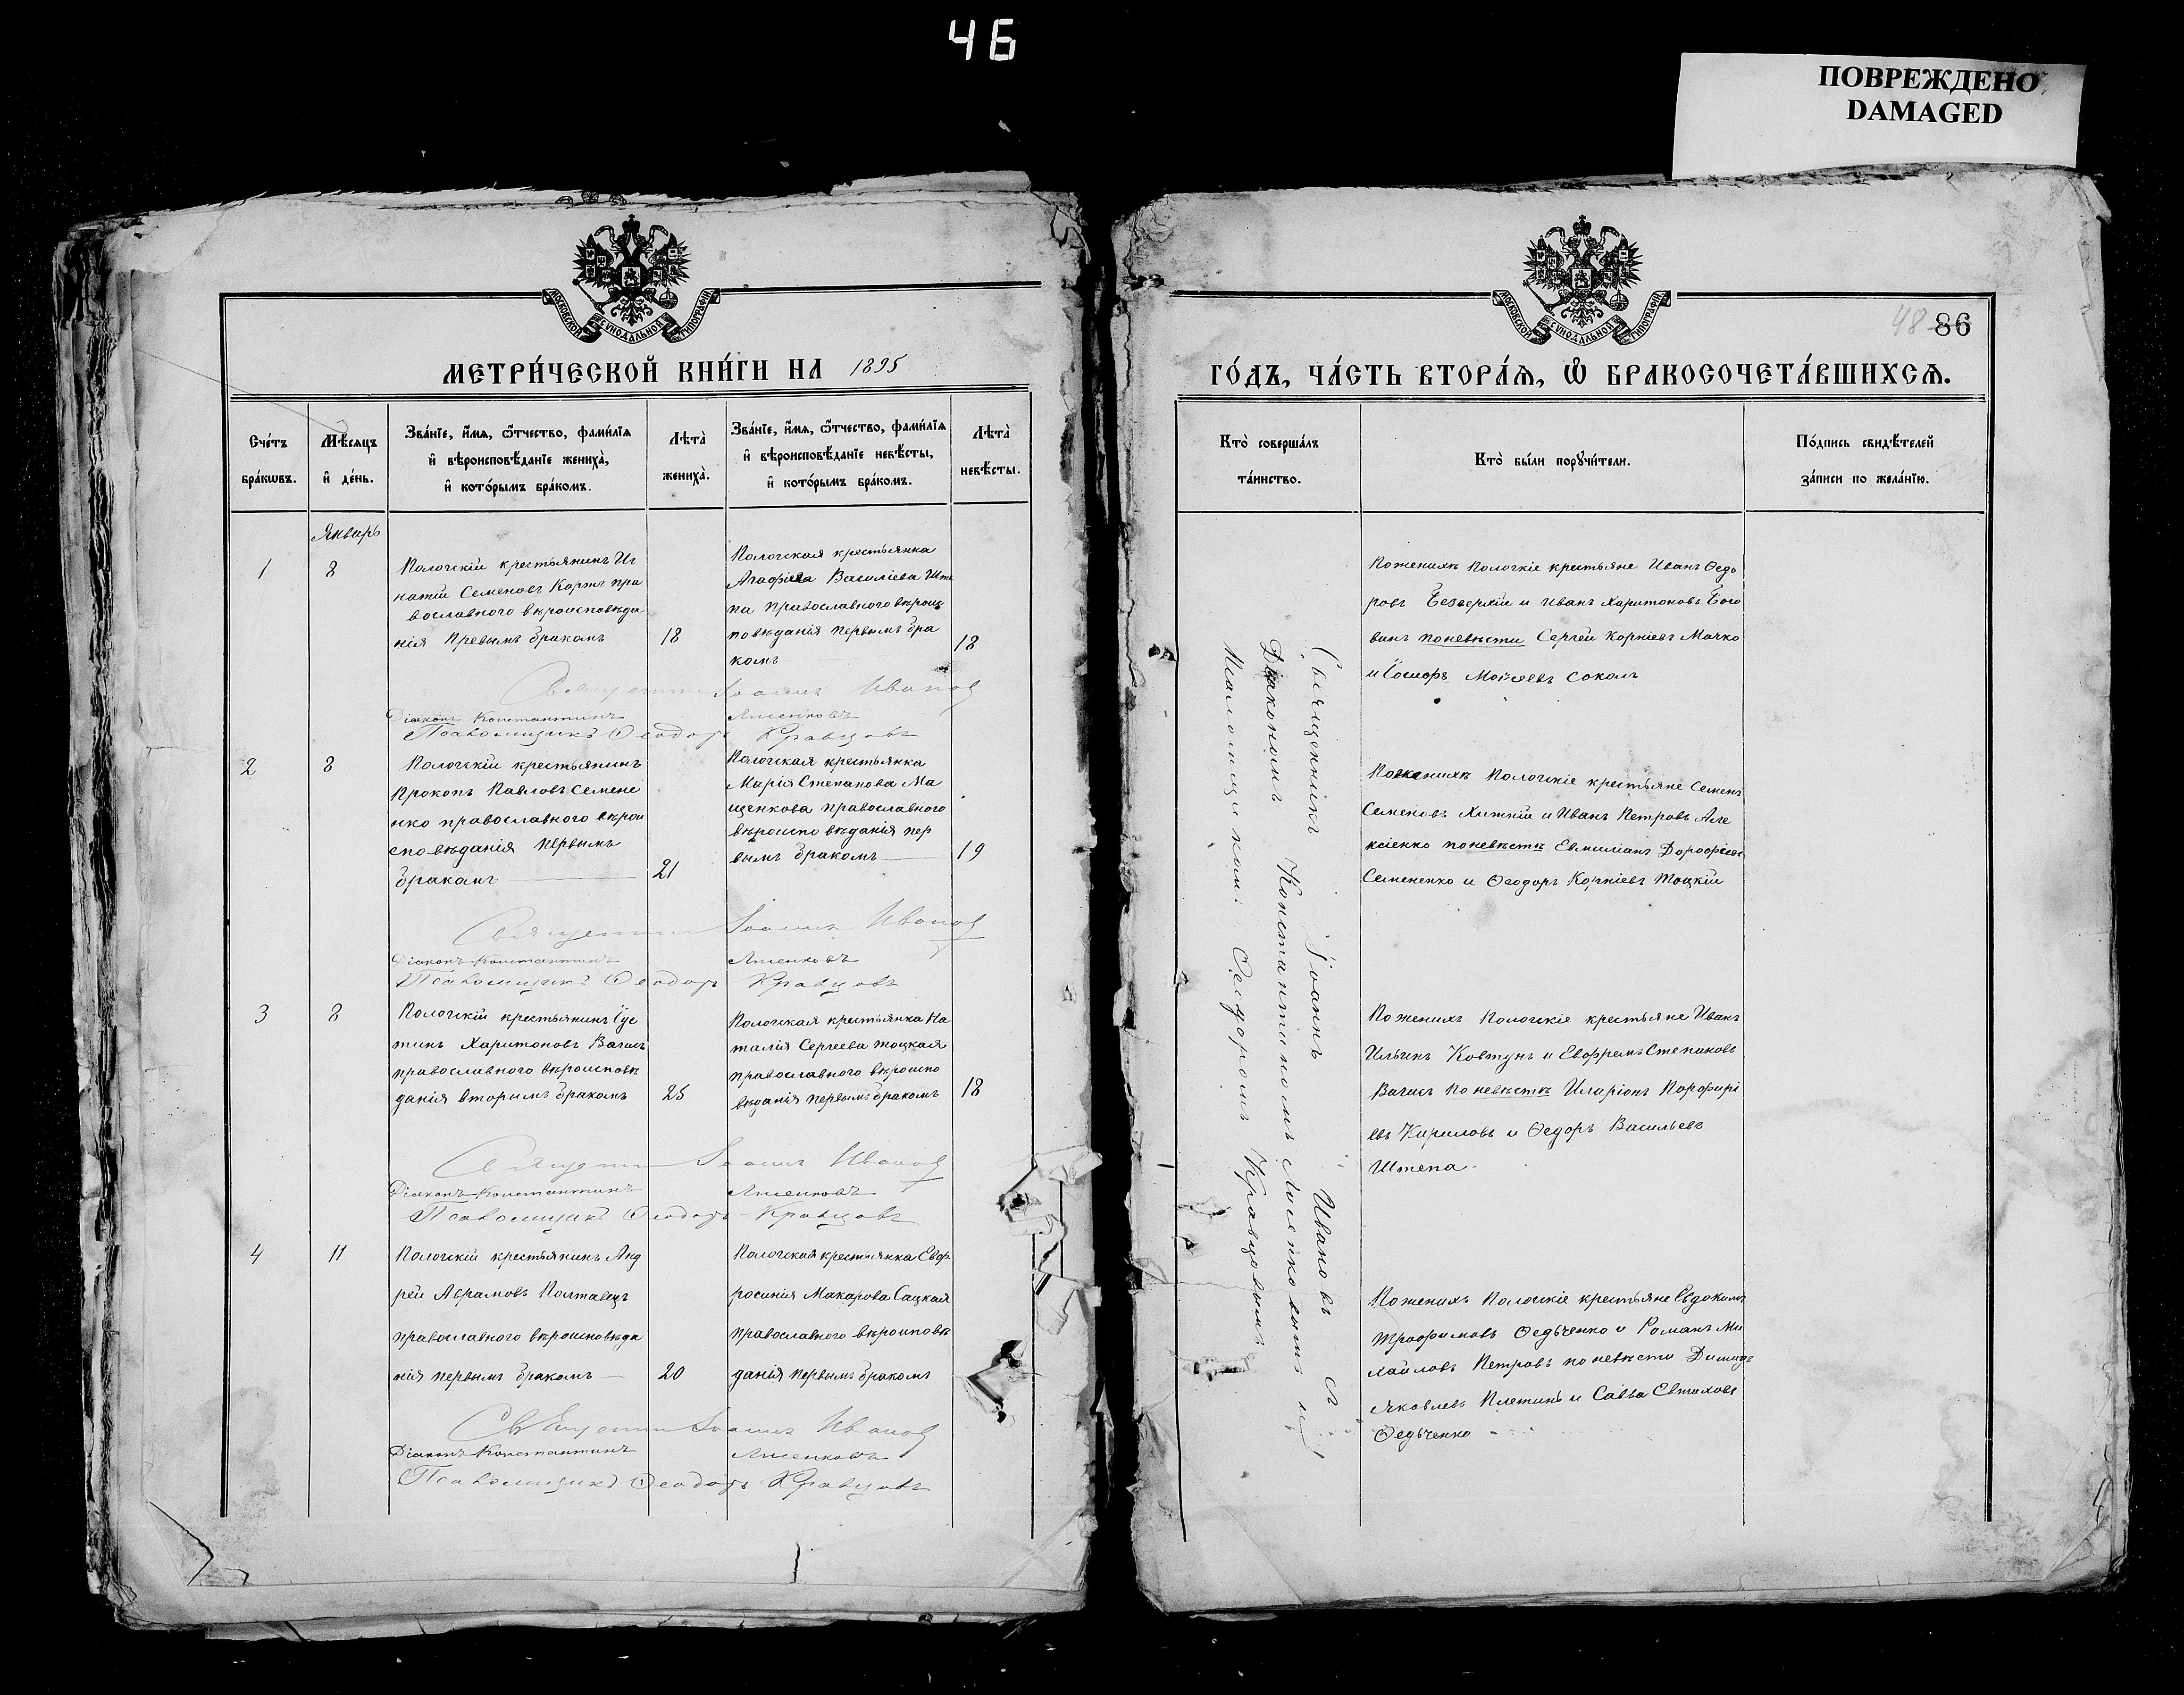 46
ПОВРЕЖДЕНО
DAMAGED
МОСКОВСКОЙ СѴНОДАЛЬНОЙ ТИПОГРАФІИ
МЕТРИ́ЧЕСКОЙ КНИ́ГИ НА 1895
Сче́тъ бра́кѡвъ.
Мѣ́сяцъ и҆ де́нь.
Зва́нїе, и҆́мѧ, ѻ҆́тчество, фами́лїѧ
и҆ вѣроисповѣ́данїе жениха̀,
и҆ кото́рымъ бра́комъ.
Лѣта̀ жениха̀.
Зва́нїе, и҆́мѧ, ѻ҆́тчество, фами́лїѧ
и҆ вѣроисповѣ́данїе невѣ́сты,
и҆ кото́рымъ бра́комъ.
Лѣта̀ невѣ́сты.
Январь
1
8
Пологскій крестьянинъ Иг
натій Семеновъ Коржъ пра
вославнаго вѣроисповѣда
нія Первымъ бракомъ
18
Пологская крестьянка
Агафія Василіева Ште
па православнаго вѣроис
повѣданія первымъ бра
комъ
18
Священникъ Іоаннъ Ивановъ
Діаконъ Константинъ Лисенковъ
Псаломщикъ Ѳеодоръ Кравцовъ
2
8
Пологскій крестьянинъ
Прокопъ Павловъ Семене
нко православнаго вѣрои
сповѣданія первымъ
бракомъ
21
Пологская крестьянка
Марія Степанова Ма
щенкова православнаго
вѣроисповѣданія пер
вымъ бракомъ
19
Священникъ Іоаннъ Ивановъ
Діаконъ Константинъ Лисенковъ
Псаломщикъ Ѳеодоръ Кравцовъ
3
8
Пологскій крестьянинъ Іус
тинъ Харитоновъ Вагисъ
православнаго вѣроисповѣ
данія вторымъ бракомъ
25
Пологская крестьянка На
талія Сергеева Тоцкая
православнаго вѣроиспо
вѣданія первымъ бракомъ
18
Священникъ Іоаннъ Ивановъ
Діаконъ Константинъ Лисенковъ
Псаломщикъ Ѳеодоръ Кравцовъ
4
11
Пологскій крестьянинъ Анд
рей Аврамовъ Полтавецъ
православнаго вѣроисповѣда
нія первымъ бракомъ
20
Пологская крестьянка Евф
росинія Макарова Сацкая
православнаго вѣроисповѣ
данія первымъ бракомъ
Священникъ Іоаннъ Ивановъ
Діаконъ Константинъ Лисенковъ
Псаломщикъ Ѳеодоръ Кравцовъ
МОСКОВСКОЙ СѴНОДАЛЬНОЙ ТИПОГРАФІИ
48 86
ГО́ДЪ, ЧА́СТЬ ВТОРА́Ѧ, Ѡ҆ БРАКОСОЧЕТА́ВШИХСѦ.
Кто̀ соверша́лъ
та́инство.
Кто̀ бы́ли порꙋчи́тели.
По́дпись свидѣ́телей
за́писи по жела́нїю.
Священникъ Іоаннъ Ивановъ съ
Діакономъ Константиномъ Лисенковымъ и
Псаломщикомъ Ѳеодоромъ Кравцовымъ
Поженихѣ Пологскіе крестьяне Иванъ Ѳедо
ровъ Безверхій и Иванъ Харитоновъ Бого
винъ поневѣсти Сергей Корніевъ Мачко
и Іосифъ Мойсеевъ Соколъ
Поженихѣ Пологскіе крестьяне Семенъ
Семеновъ Хижкій и Иванъ Петровъ Але
ксіенко поневѣстѣ Евмиліанъ Дорофіевъ
Семененко и Ѳеодоръ Корніевъ Тоцкій
Поженихѣ Пологскіе крестьяне Иванъ
Ильинъ Ковтунъ и Евфремъ Степановъ
Вагисъ поневѣстѣ Иларіонъ Порфирі
евъ Кириловъ и Ѳедоръ Васильевъ
Штепа.
Поженихѣ Пологскіе крестьяне Евдокимъ
Трофимовъ Ѳедьченко и Романъ Ми
хайловъ Петровъ поневѣсти Димидъ
Яковлевъ Плетинь и Савва Евтиховъ
Ѳедьченко